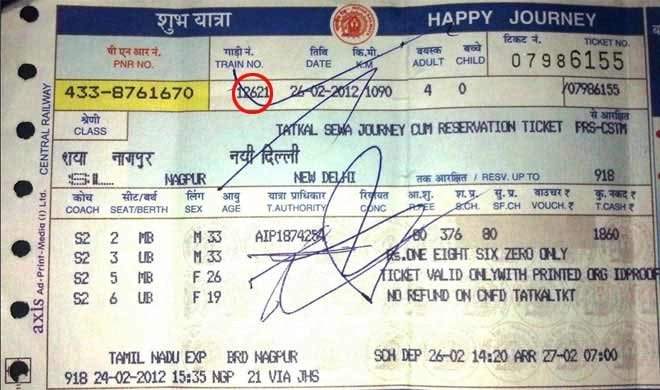 शुभ यात्रा HAPPY JOURNEY
पी एन आर नं. गाड़ी नं. तिथि कि.मी. वयस्क बच्चे टिकट नं. TICKET NO.
PNR NO. TRAIN NO. DATE K.M. ADULT CHILD 07986155
433-8761670 12621 26-02-2012 1090 4 0 /07986155
श्रेणी से आरक्षित
CLASS TATKAL SEWA JOURNEY CUM RESERVATION TICKET PRS-CSTM
शया नागपुर नयी दिल्ली
SL NAGPUR NEW DELHI तक आरक्षित / RESV. UP TO 918
कोच सीट/बर्थ लिंग आयु यात्रा प्राधिकार रियायत आ.शु. श. प्र. सु. प्र. वाउचर ₹ कु. नकद ₹
COACH SEAT/BERTH SEX AGE T.AUTHORITY CONC R.FEE S.CH. SF.CH VOUCH.₹ T.CASH ₹
S2 2 MB M 33 AIP1874254 80 376 80 1860
S2 3 UB M 33 Rs.ONE EIGHT SIX ZERO ONLY
S2 5 MB F 26 TICKET VALID ONLYWITH PRINTED ORG IDPROOF
S2 6 UB F 19 NO REFUND ON CNFD TATKALTKT
TAMIL NADU EXP BRD NAGPUR SCH DEP 26-02 14:20 ARR 27-02 07:00
918 24-02-2012 15:35 NGP 21 VIA JHS
CENTRAL RAILWAY
axis Ad-Print-Media (I) Ltd.